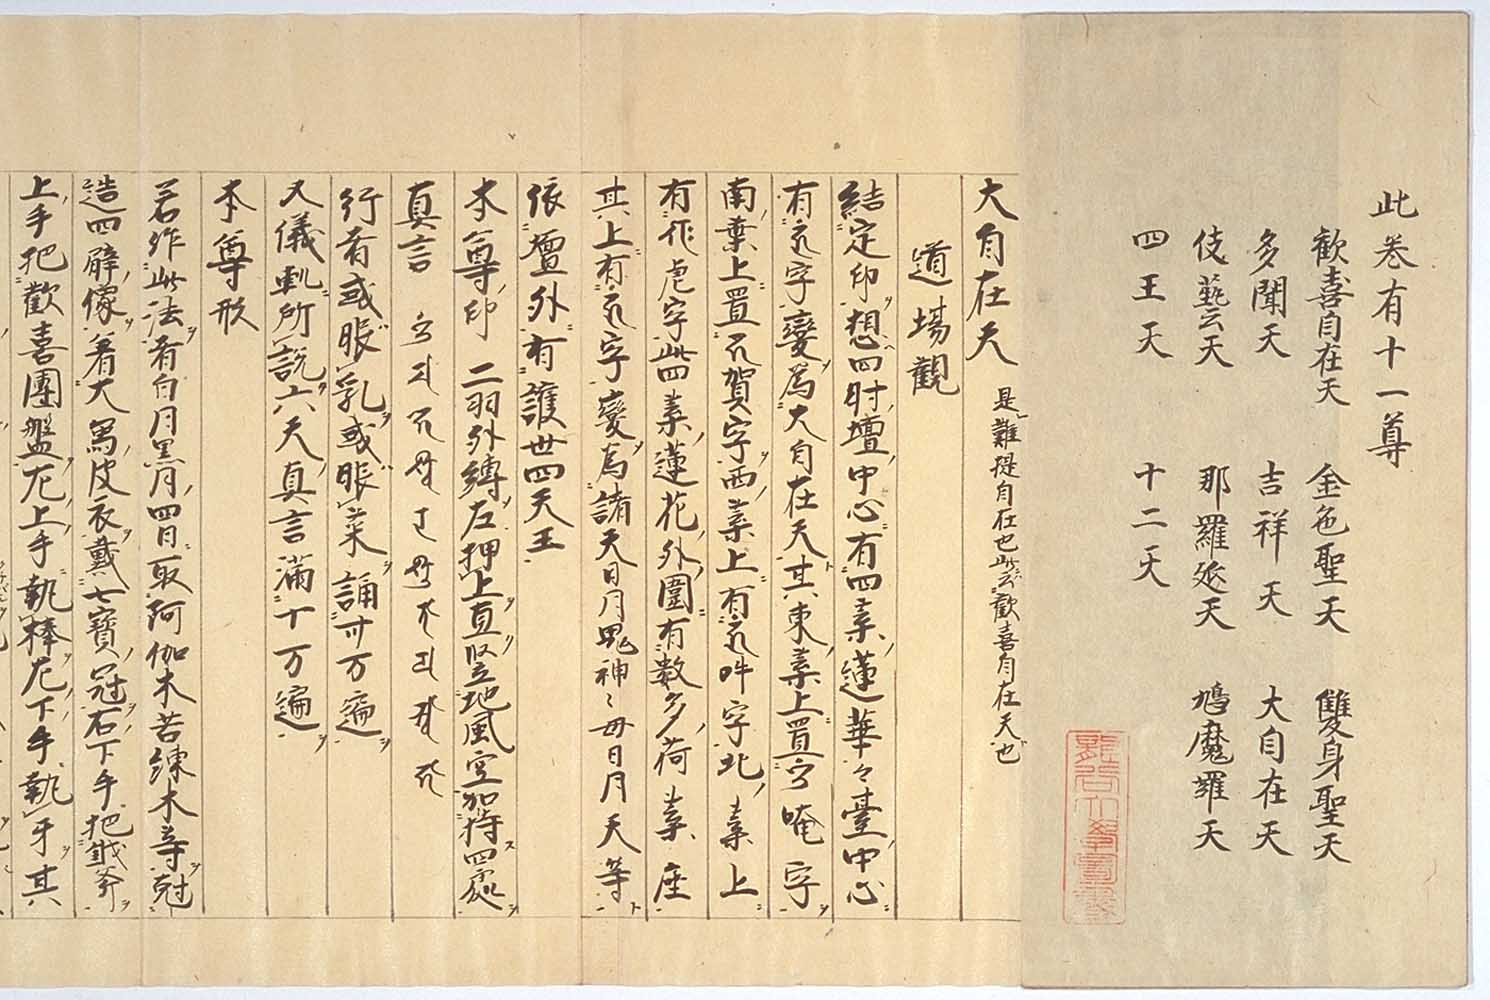 此巻有十一尊
歓喜自在天 金色聖天 雙身聖天
多聞天 吉祥天 大自在天
伎藝天 那羅延天 鳩魔羅天
四王天 十二天
大自在天 是難提自在也此云歓喜自在天也
道場観
結定印想四肘壇中心有四葉蓮華々臺中心
有字變為大自在天其東葉上置唵字
南葉上置賀字西葉上有吽字北葉上
有字此四葉蓮花外圍有数多荷葉座
其上有字變為諸天日月鬼神〻毋日月天等
依壇外有護世四天王
本尊印 二羽外縛左押上直竪地風空加持四處
真言
行者或服乳或服菜誦卅万遍
又儀軌所説六天真言満十万遍
本尊形
若作此法者白月黒月四日取阿伽木苦練木等剋
造四臂像着大為皮衣戴七寶冠右下手把鉞斧
上手把歡喜團盤左上手執棒左下手執牙其